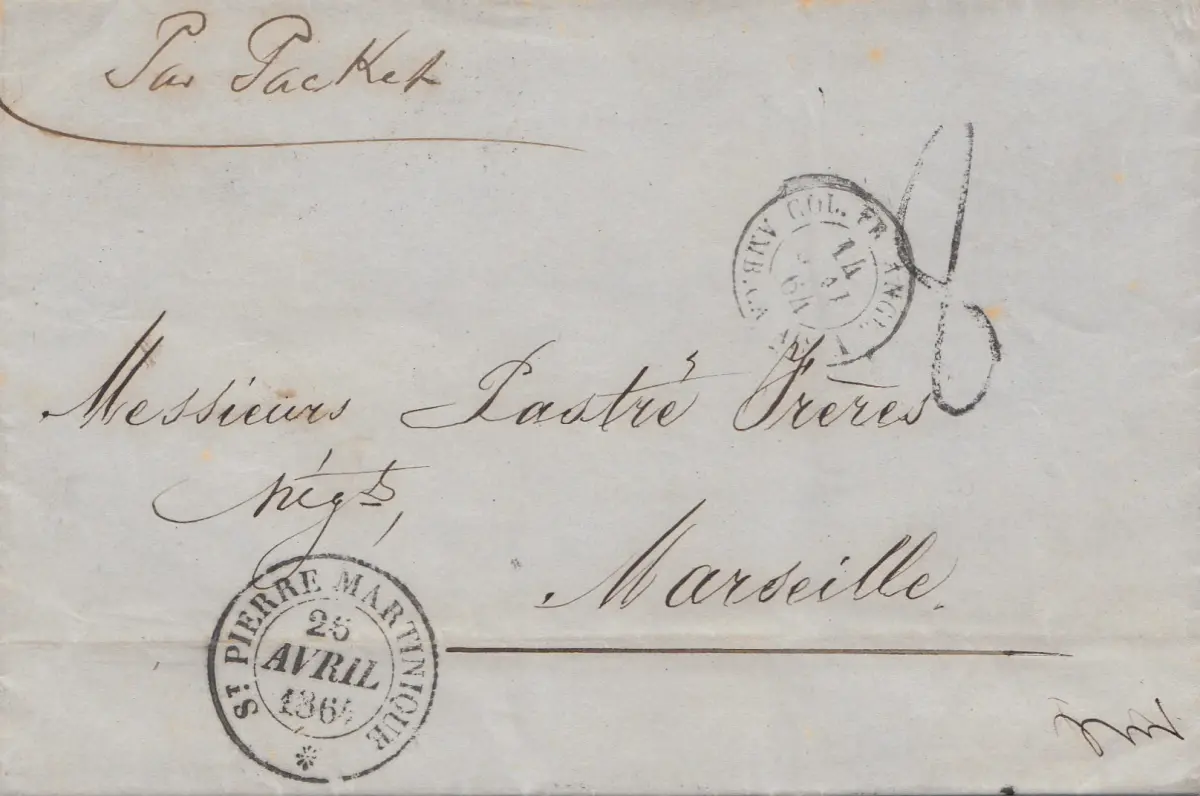 Par Packet
COL. FR. ANGL. AMB. CA
14
MAI
64
8
Messieurs Pastré Frères
Négts,
Marseille.
ST. PIERRE MARTINIQUE
25
AVRIL
1864